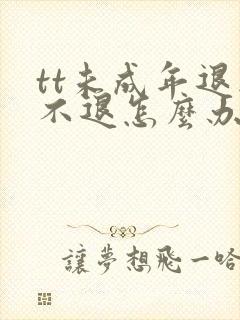 tt未成年退
不退怎麼办
讓夢想飛一哈